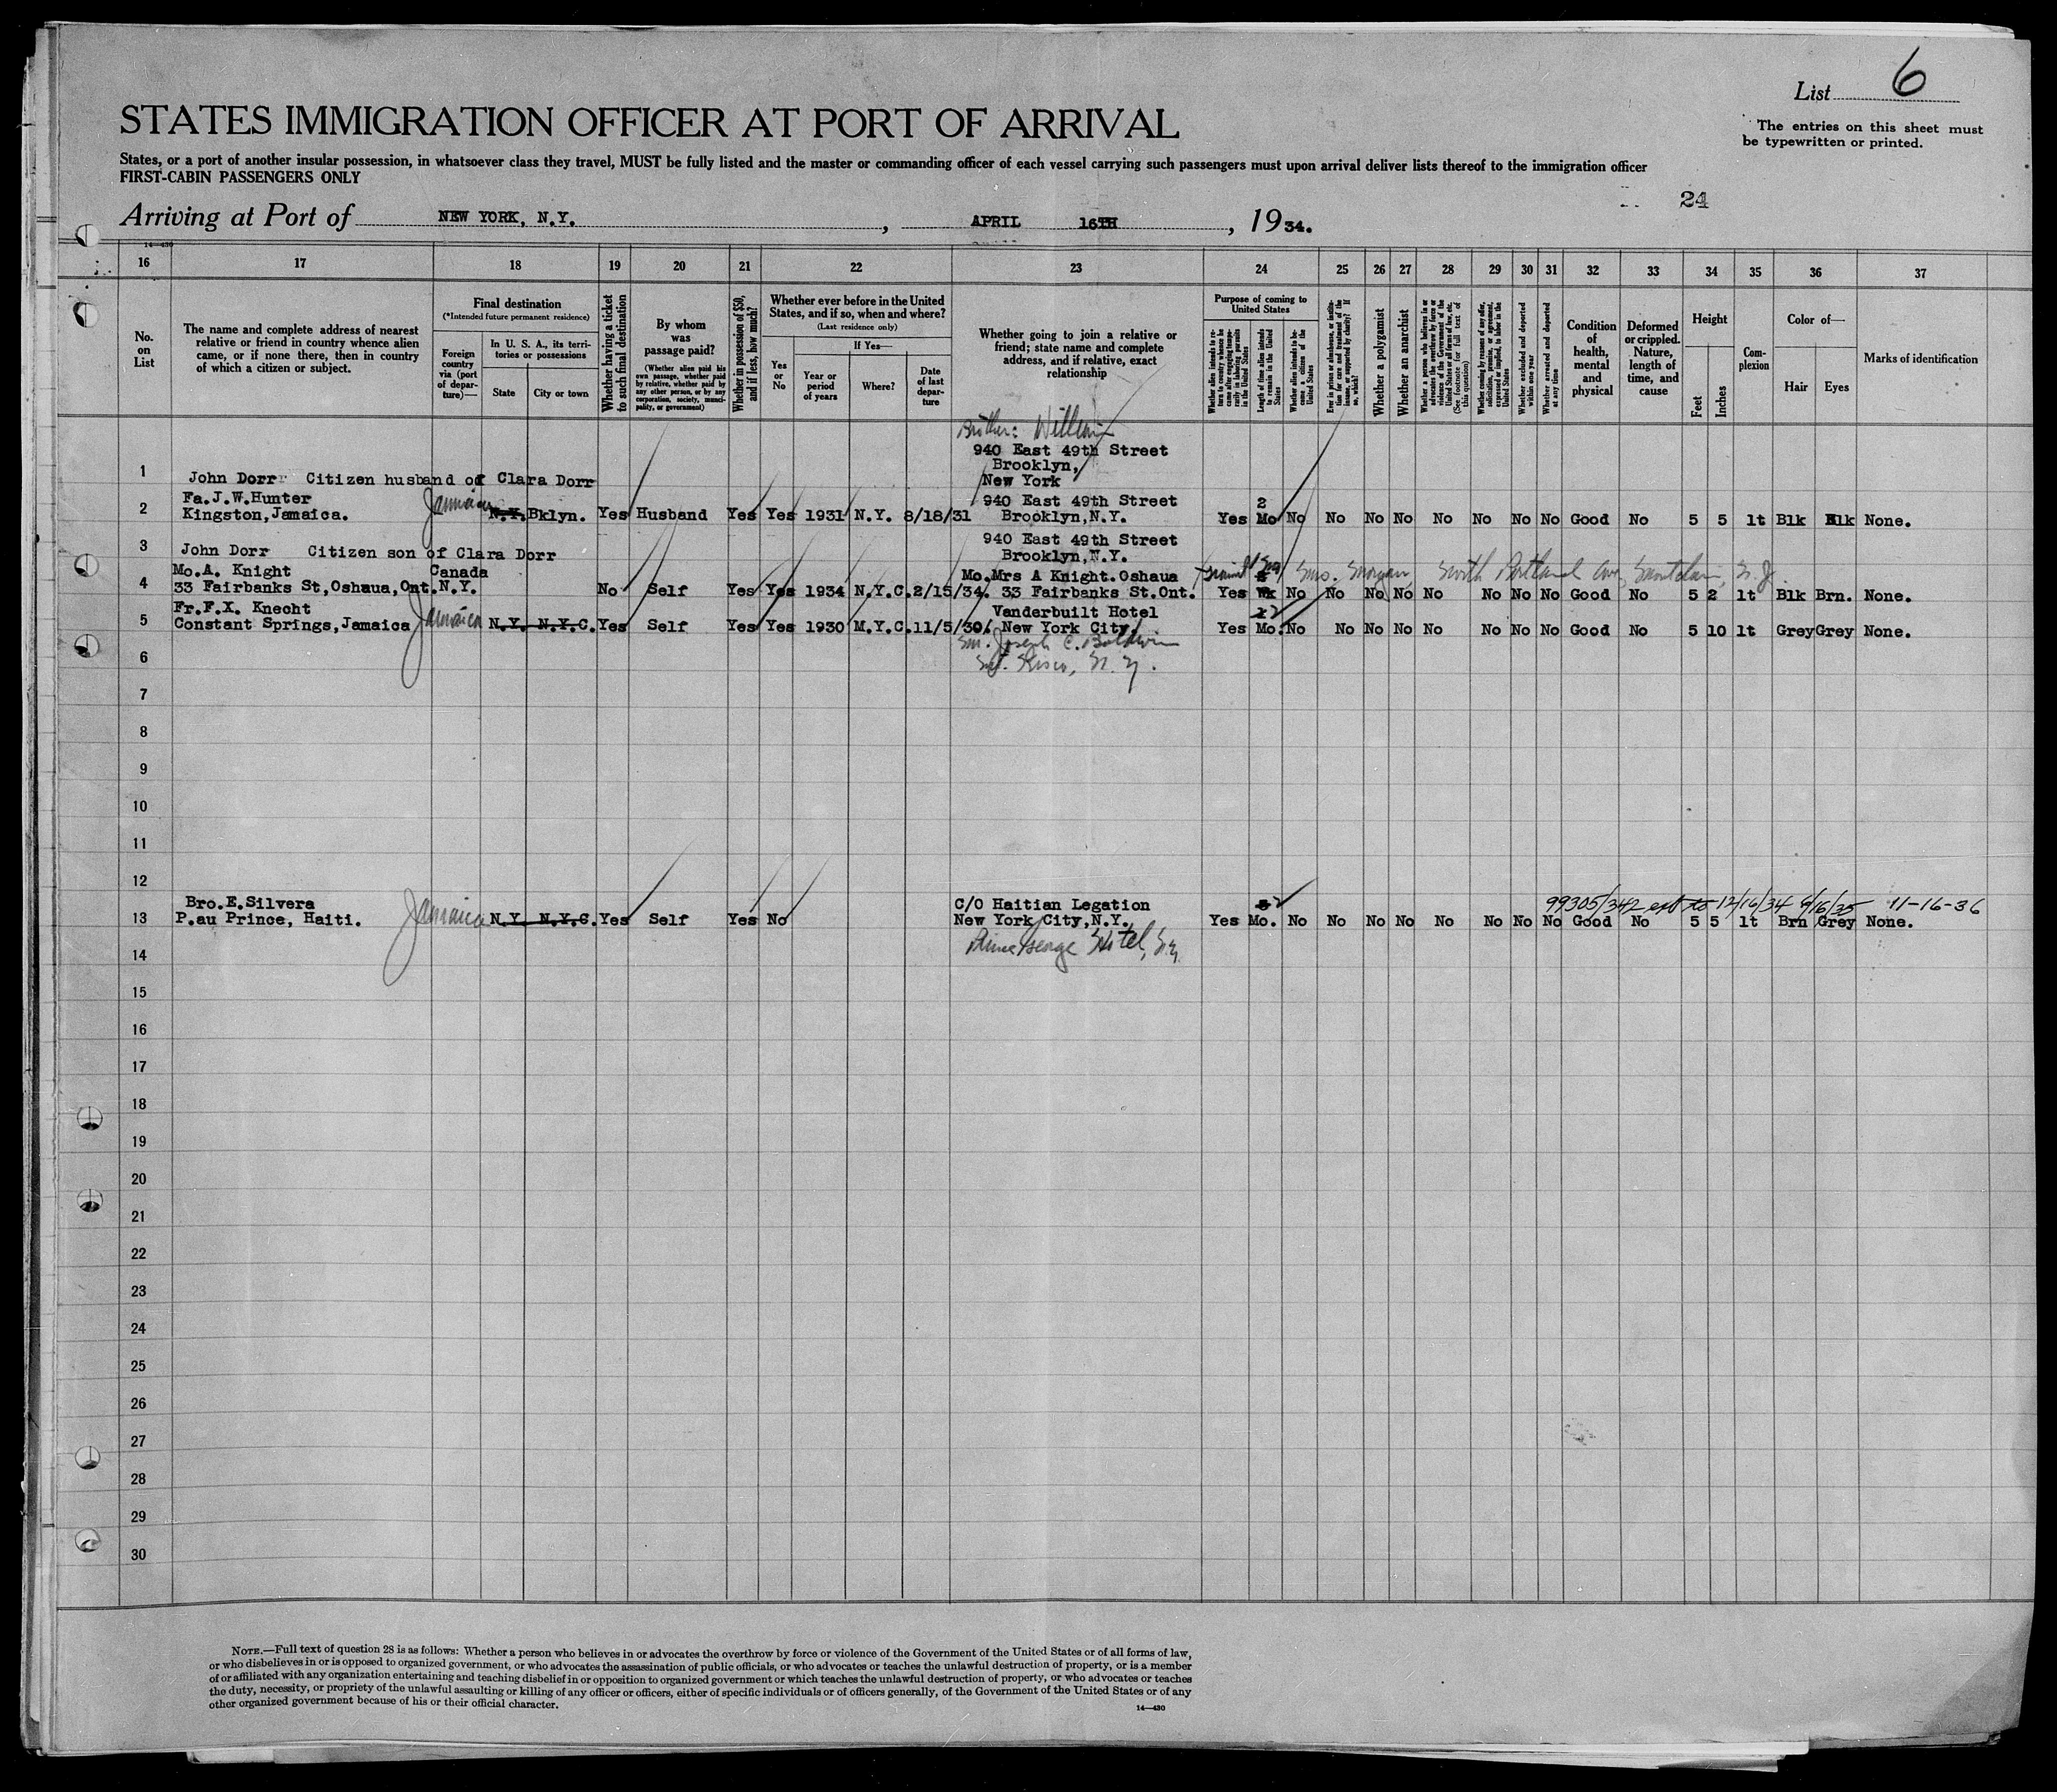 List 6
STATES IMMIGRATION OFFICER AT PORT OF ARRIVAL
The entries on this sheet must
be typewritten or printed.
States, or a port of another insular possession, in whatsoever class they travel, MUST be fully listed and the master or commanding officer of each vessel carrying such passengers must upon arrival deliver lists thereof to the immigration officer
FIRST-CABIN PASSENGERS ONLY
24
Arriving at Port of NEW YORK, N.Y. , APRIL 16TH , 1934.
14-430
16 17 18 19 20 21 22 23 24 25 26 27 28 29 30 31 32 33 34 35 36 37
No. on List
The name and complete address of nearest
relative or friend in country whence alien
came, or if none there, then in country
of which a citizen or subject.
Final destination
(*Intended future permanent residence)
Foreign country via (port of departure)—
In U. S. A., its territories or possessions
State
City or town
Whether having a ticket to such final destination
By whom was passage paid?
(Whether alien paid his own passage, whether paid by relative, whether paid by any other person, or by any corporation, society, municipality, or government)
Whether in possession of $50, and if less, how much?
Whether ever before in the United States, and if so, when and where?
(Last residence only)
Yes or No
If Yes—
Year or period of years
Where?
Date of last departure
Whether going to join a relative or
friend; state name and complete
address, and if relative, exact
relationship
Purpose of coming to United States
Length of time alien intends to remain in the United States
Whether alien intends to become a citizen of the United States
Whether a polygamist
Whether an anarchist
(See footnote for full text of this question)
Whether excluded and deported within one year
Whether arrested and deported at any time
Condition of health, mental and physical
Deformed or crippled. Nature, length of time, and cause
Height
Feet
Inches
Complexion
Color of—
Hair
Eyes
Marks of identification
Brother: William
940 East 49th Street
Brooklyn,
New York
1 John Dorr Citizen husband of Clara Dorr
Fa.J.W.Hunter Jamaica 940 East 49th Street 2
2 Kingston,Jamaica. N.Y. Bklyn. Yes Husband Yes Yes 1931 N.Y. 8/18/31 Brooklyn,N.Y. Yes Mo No No No No No No No No Good No 5 5 lt Blk Blk None.
940 East 49th Street
3 John Dorr Citizen son of Clara Dorr Brooklyn,N.Y.
Mo.A. Knight Canada Mo.Mrs A Knight.Oshaua Mrs. Morgan, North Portland Ave
4 33 Fairbanks St,Oshaua,Ont. N.Y. No Self Yes Yes 1934 N.Y.C. 2/15/34. 33 Fairbanks St.Ont. Yes Wk No No No No No No No No Good No 5 2 lt Blk Brn. None.
Fr.F.X. Knecht Jamaica Vanderbuilt Hotel 2
5 Constant Springs,Jamaica N.Y. N.Y.C. Yes Self Yes Yes 1930 M.Y.C. 11/5/30. New York City Yes Mo. No No No No No No No No Good No 5 10 lt Grey Grey None.
Joseph C. Baldwin
6 Mt. Kisco, N.Y.
7
8
9
10
11
12
Bro.E.Silvera Jamaica C/O Haitian Legation 2 99305/342 ext to 12/16/34 6/16/35 11-16-36
13 P.au Prince, Haiti. N.Y. N.Y.C. Yes Self Yes No New York City,N.Y. Yes Mo. No No No No No No No No Good No 5 5 lt Brn Grey None.
Prince George Hotel, N.Y.
14
15
16
17
18
19
20
21
22
23
24
25
26
27
28
29
30
NOTE.—Full text of question 28 is as follows: Whether a person who believes in or advocates the overthrow by force or violence of the Government of the United States or of all forms of law,
or who disbelieves in or is opposed to organized government, or who advocates the assassination of public officials, or who advocates or teaches the unlawful destruction of property, or is a member
of or affiliated with any organization entertaining and teaching disbelief in or opposition to organized government or which teaches the unlawful destruction of property, or who advocates or teaches
the duty, necessity, or propriety of the unlawful assaulting or killing of any officer or officers, either of specific individuals or of officers generally, of the Government of the United States or of any
other organized government because of his or their official character.
14—430